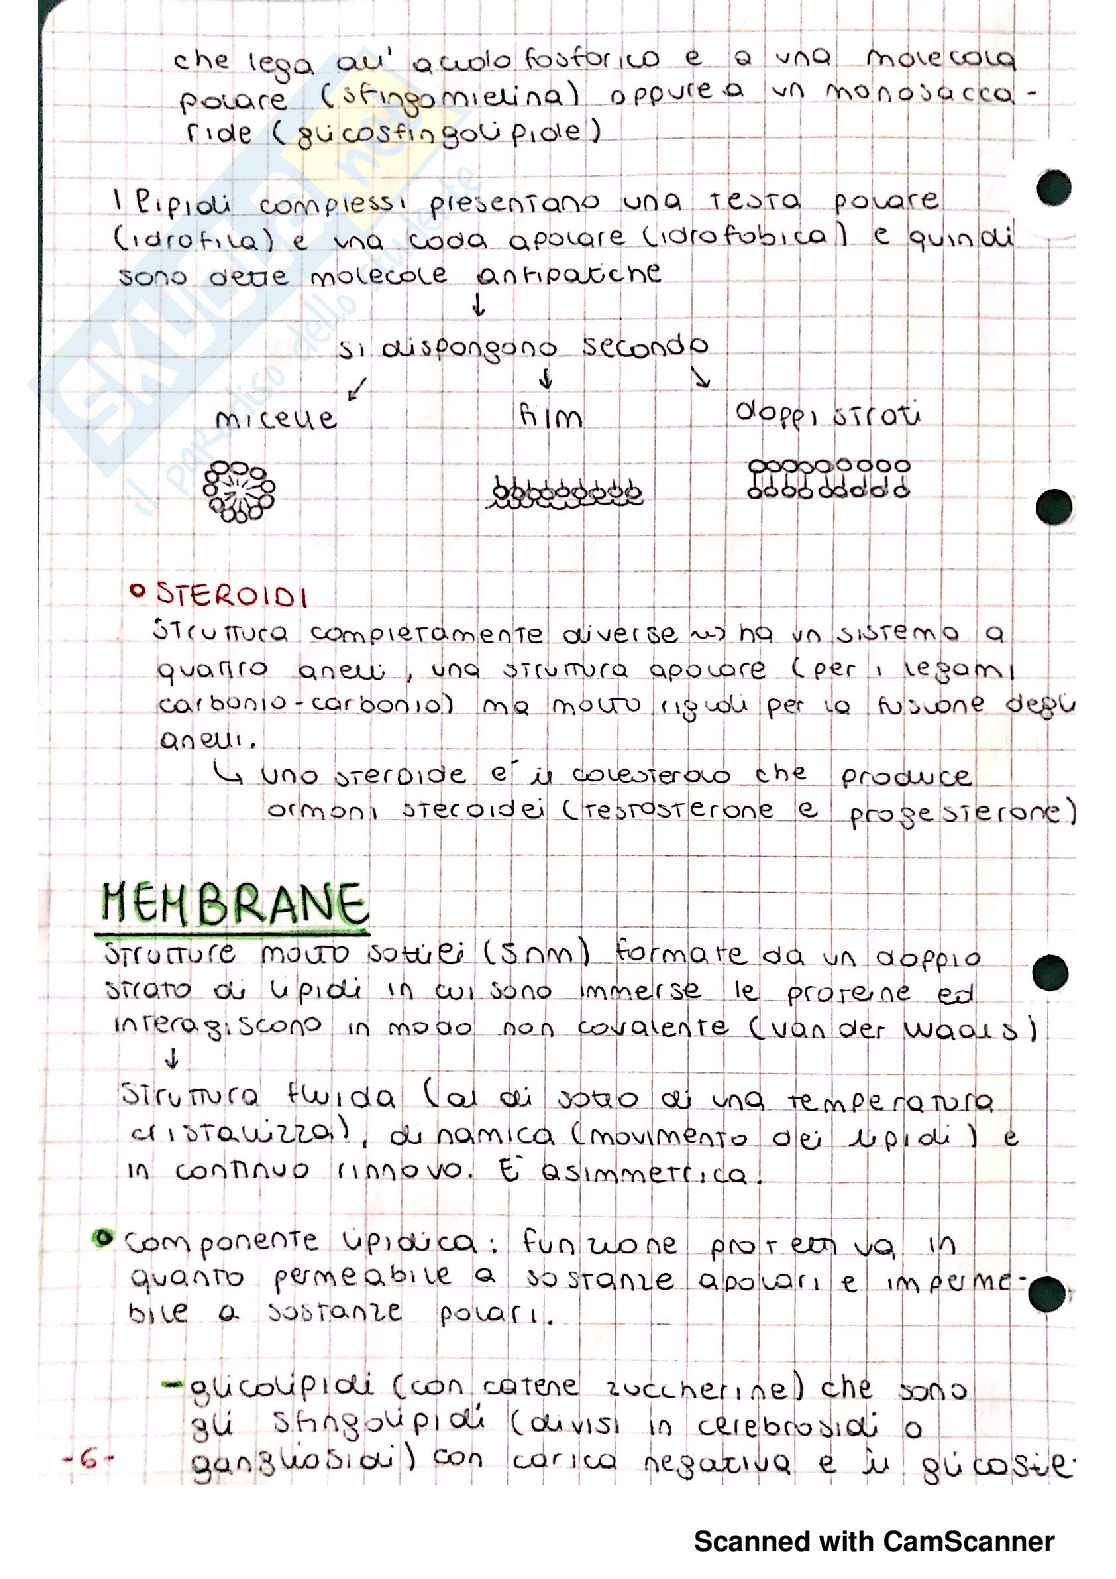 che lega all' acido fosforico e a una molecola
polare (sfingomielina) oppure a un monosacca-
ride (glicosfingolipide)
I lipidi complessi presentano una testa polare
(idrofila) e una coda apolare (idrofobica) e quindi
sono dette molecole antipatiche
↓
si dispongono secondo
↙ ↓ ↘
micelle film doppi strati
• STEROIDI
Struttura completamente diverse ~> ha un sistema a
quattro anelli, una struttura apolare (per i legami
carbonio-carbonio) ma molto rigidi per la fusione degli
anelli.
↳ uno steroide e' il colesterolo che produce
ormoni steroidei (testosterone e progesterone)
MEMBRANE
Strutture molto sottili (5nm) formate da un doppio
strato di lipidi in cui sono immerse le proteine ed
interagiscono in modo non covalente (van der Waals)
↓
Struttura fluida (al di sotto di una temperatura
cristallizza), dinamica (movimento dei lipidi) e
in continuo rinnovo. E' asimmetrica.
• Componente lipidica: funzione protettiva, in
quanto permeabile a sostanze apolari e imperme-
bile a sostanze polari.
- glicolipidi (con catene zuccherine) che sono
gli sfingolipidi (divisi in cerebrosidi o
gangliosidi) con carica negativa e il glicoste-
-6-
SKUOLA.net
il paradiso dello studente
Scanned with CamScanner